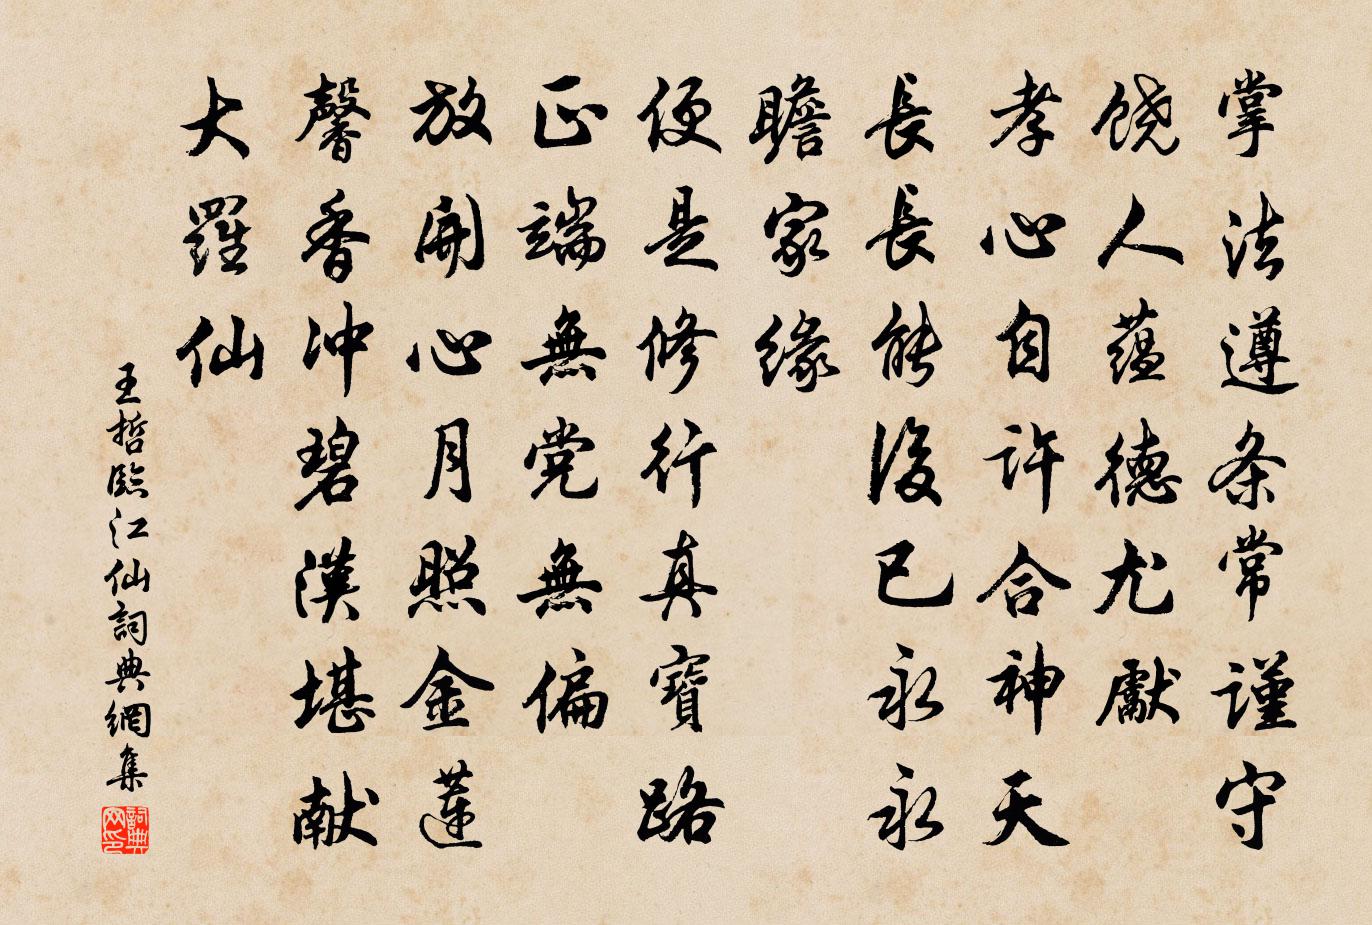 掌法遵条常謹守
饶人蕴德尤獻
孝心自許合神天
長長能後已永永
瞻家緣
便是修行真寶路
正端無党無偏
放開心月照金蓮
馨香冲碧漢堪献
大羅仙
王哲臨江仙詞典網集
詞典网印